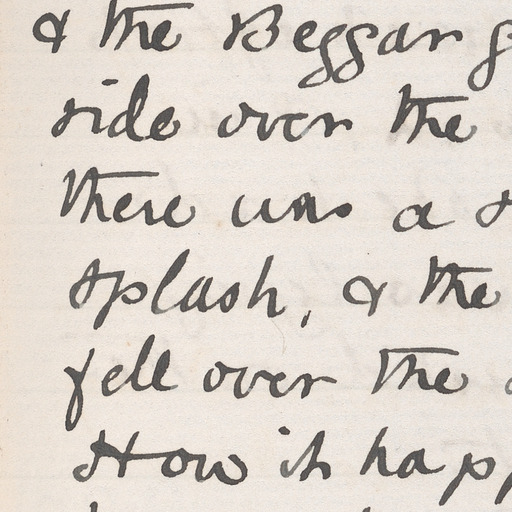 & the Beggar g
side over the
there was a s
splash, & the
fell over the
How it happ